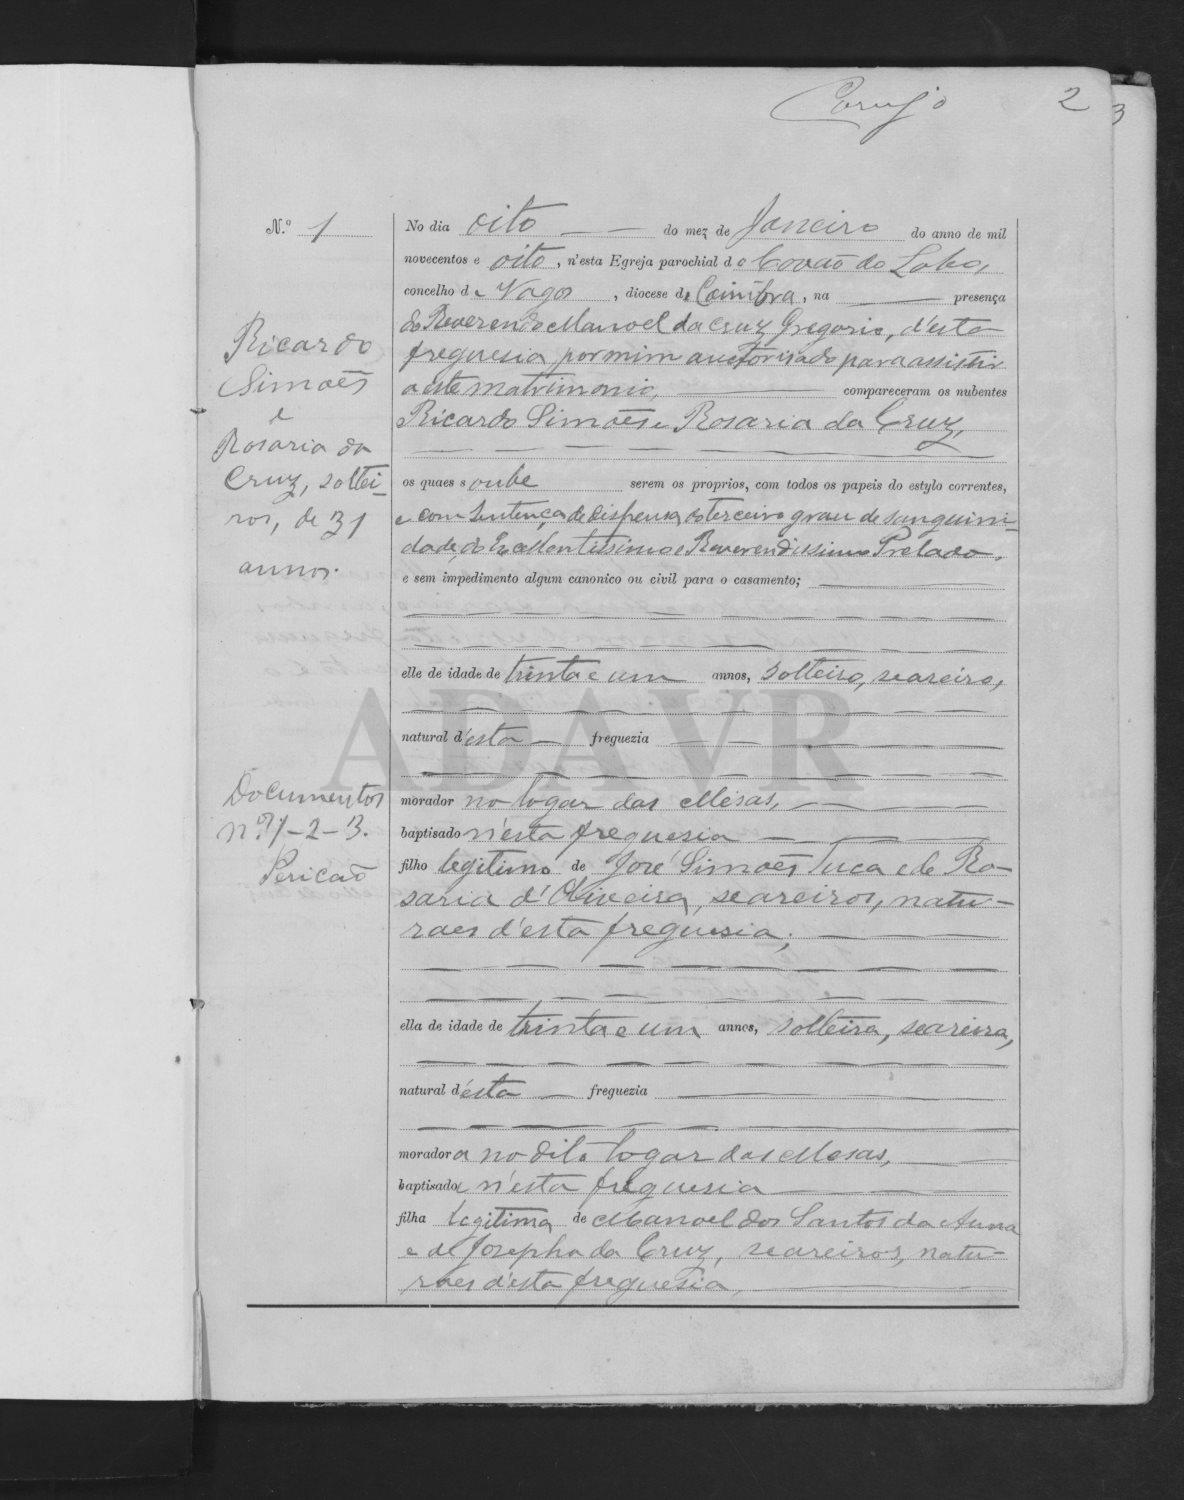 Corujo 2
3
N.º 1
Ricardo
Simoẽs
e
Rosaria da
Cruz, soltei-
ros, de 31
annos.
Documentos
n.os 1-2-3.
No dia oito do mez de Janeiro do anno de mil
novecentos e oito, n'esta Egreja parochial do Covão do Lobo,
concelho de Vagos, diocese de Coimbra, na presença
do Reverendo Manoel da Cruz Gregorio, d'esta
freguesia por mim auctorisado para assistir
a este matrimonio, compareceram os nubentes
Ricardo Simoẽs e Rosaria da Cruz,
os quaes soube serem os proprios, com todos os papeis do estylo correntes,
e com Sentença de dispensa do terceiro grau de sanguini-
dade, do Excellentissimo e Reverendissimo Prelado,
e sem impedimento algum canonico ou civil para o casamento;
elle de idade de trinta e um annos, solteiro, seareiro,
ADAVR
natural d'esta freguezia
morador no logar das Mesas,
baptisado n'esta freguesia
filho legitimo de José Simoẽs Tuca e de Ro-
saria d'Oliveira, seareiros, natu-
raes d'esta freguesia;
ella de idade de trinta e um annos, solteira, seareira,
natural d'esta freguezia
moradora no dito logar das Mesas,
baptisada n'esta freguesia
filha legitima de Manoel dos Santos da Anna
e de Josepha da Cruz, seareiros, natu-
raes d'esta freguesia,